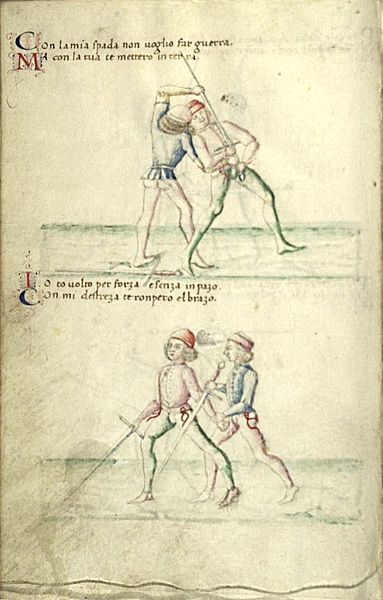 Con la mia spada non voglio far guerra.
Ma con la tua te mettero in terra.
Io to volto per forza e senza impazo.
Con mi destreza te ronpero el brazo.